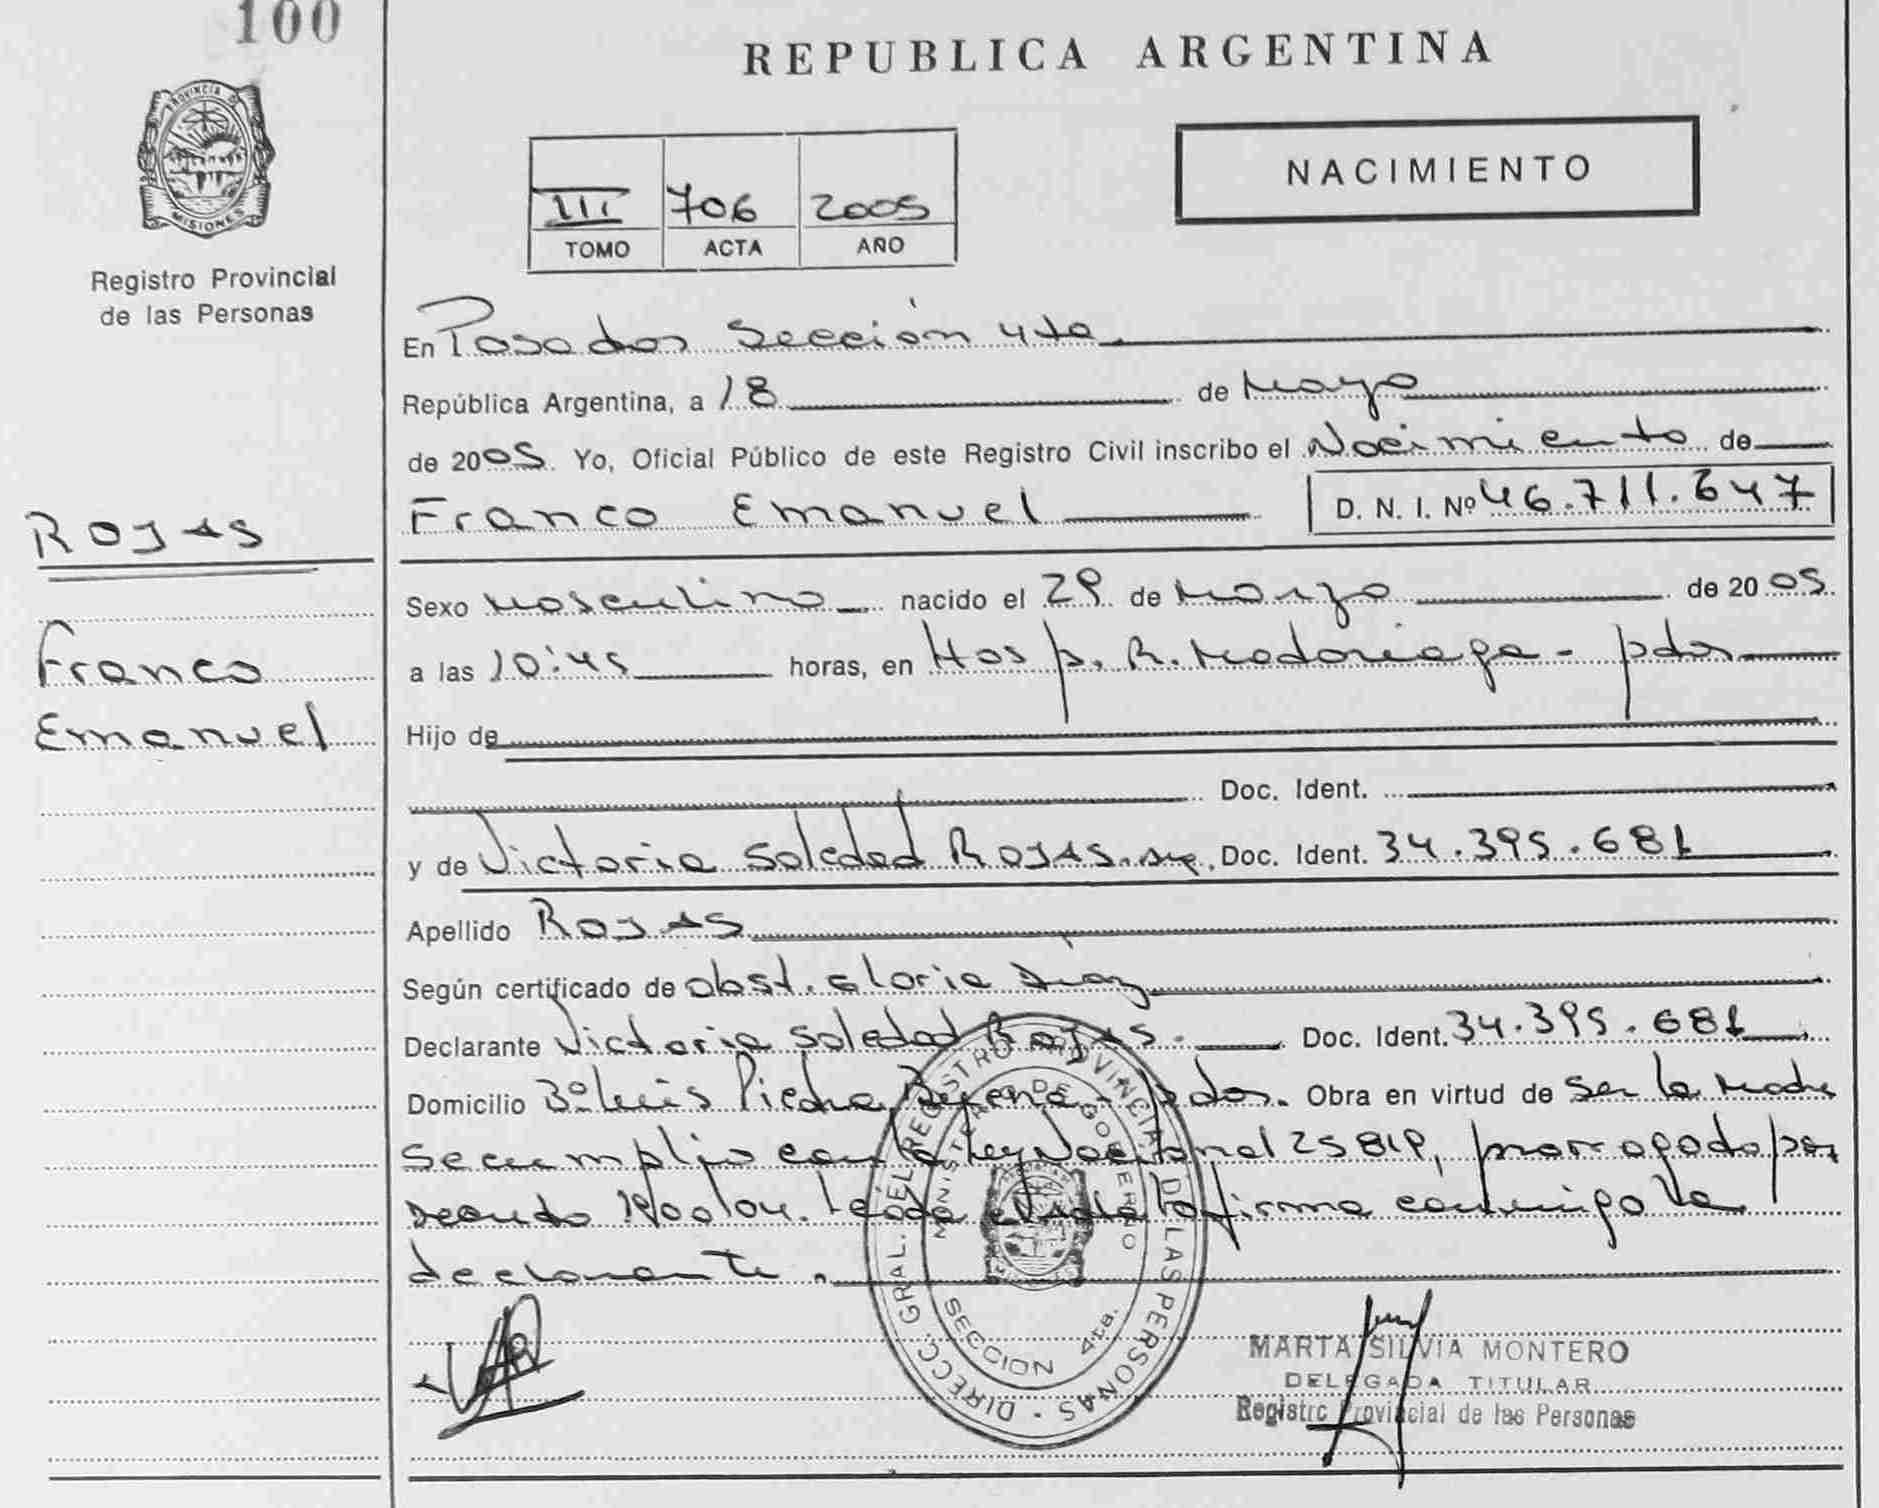 100
REPUBLICA ARGENTINA
PROVINCIA DE
MISIONES
Registro Provincial
de las Personas
NACIMIENTO
III 706 2005
TOMO ACTA AÑO
En Posadas Sección 4ta
República Argentina, a 18 de Mayo
de 2005 Yo, Oficial Público de este Registro Civil inscribo el Nacimiento de
Franco Emanuel D. N. I. Nº 46.711.647
ROJAS
Franco
Emanuel
Sexo Masculino nacido el 29 de Marzo de 2005
a las 10:45 horas, en Hosp. R. Madariaga - pdas
Hijo de
Doc. Ident.
y de Victoria Soledad ROJAS Doc. Ident. 34.395.681
Apellido ROJAS
Según certificado de obst. Gloria Diaz
Declarante Victoria Soledad ROJAS. Doc. Ident. 34.395.681
Domicilio Bº Luis Piedra Buena - pdas. Obra en virtud de ser la Madre
se cumplio con la Ley Nacional 25819, prorrogado por
Decreto 1900/04. Leida el acta la firma conmigo la
declarante.
DIRECC. GRAL. DEL REGISTRO PROVINCIAL DE LAS PERSONAS
MINISTERIO DE GOBIERNO
SECCION 4ta.
MARTA SILVIA MONTERO
DELEGADA TITULAR
Registro Provincial de las Personas